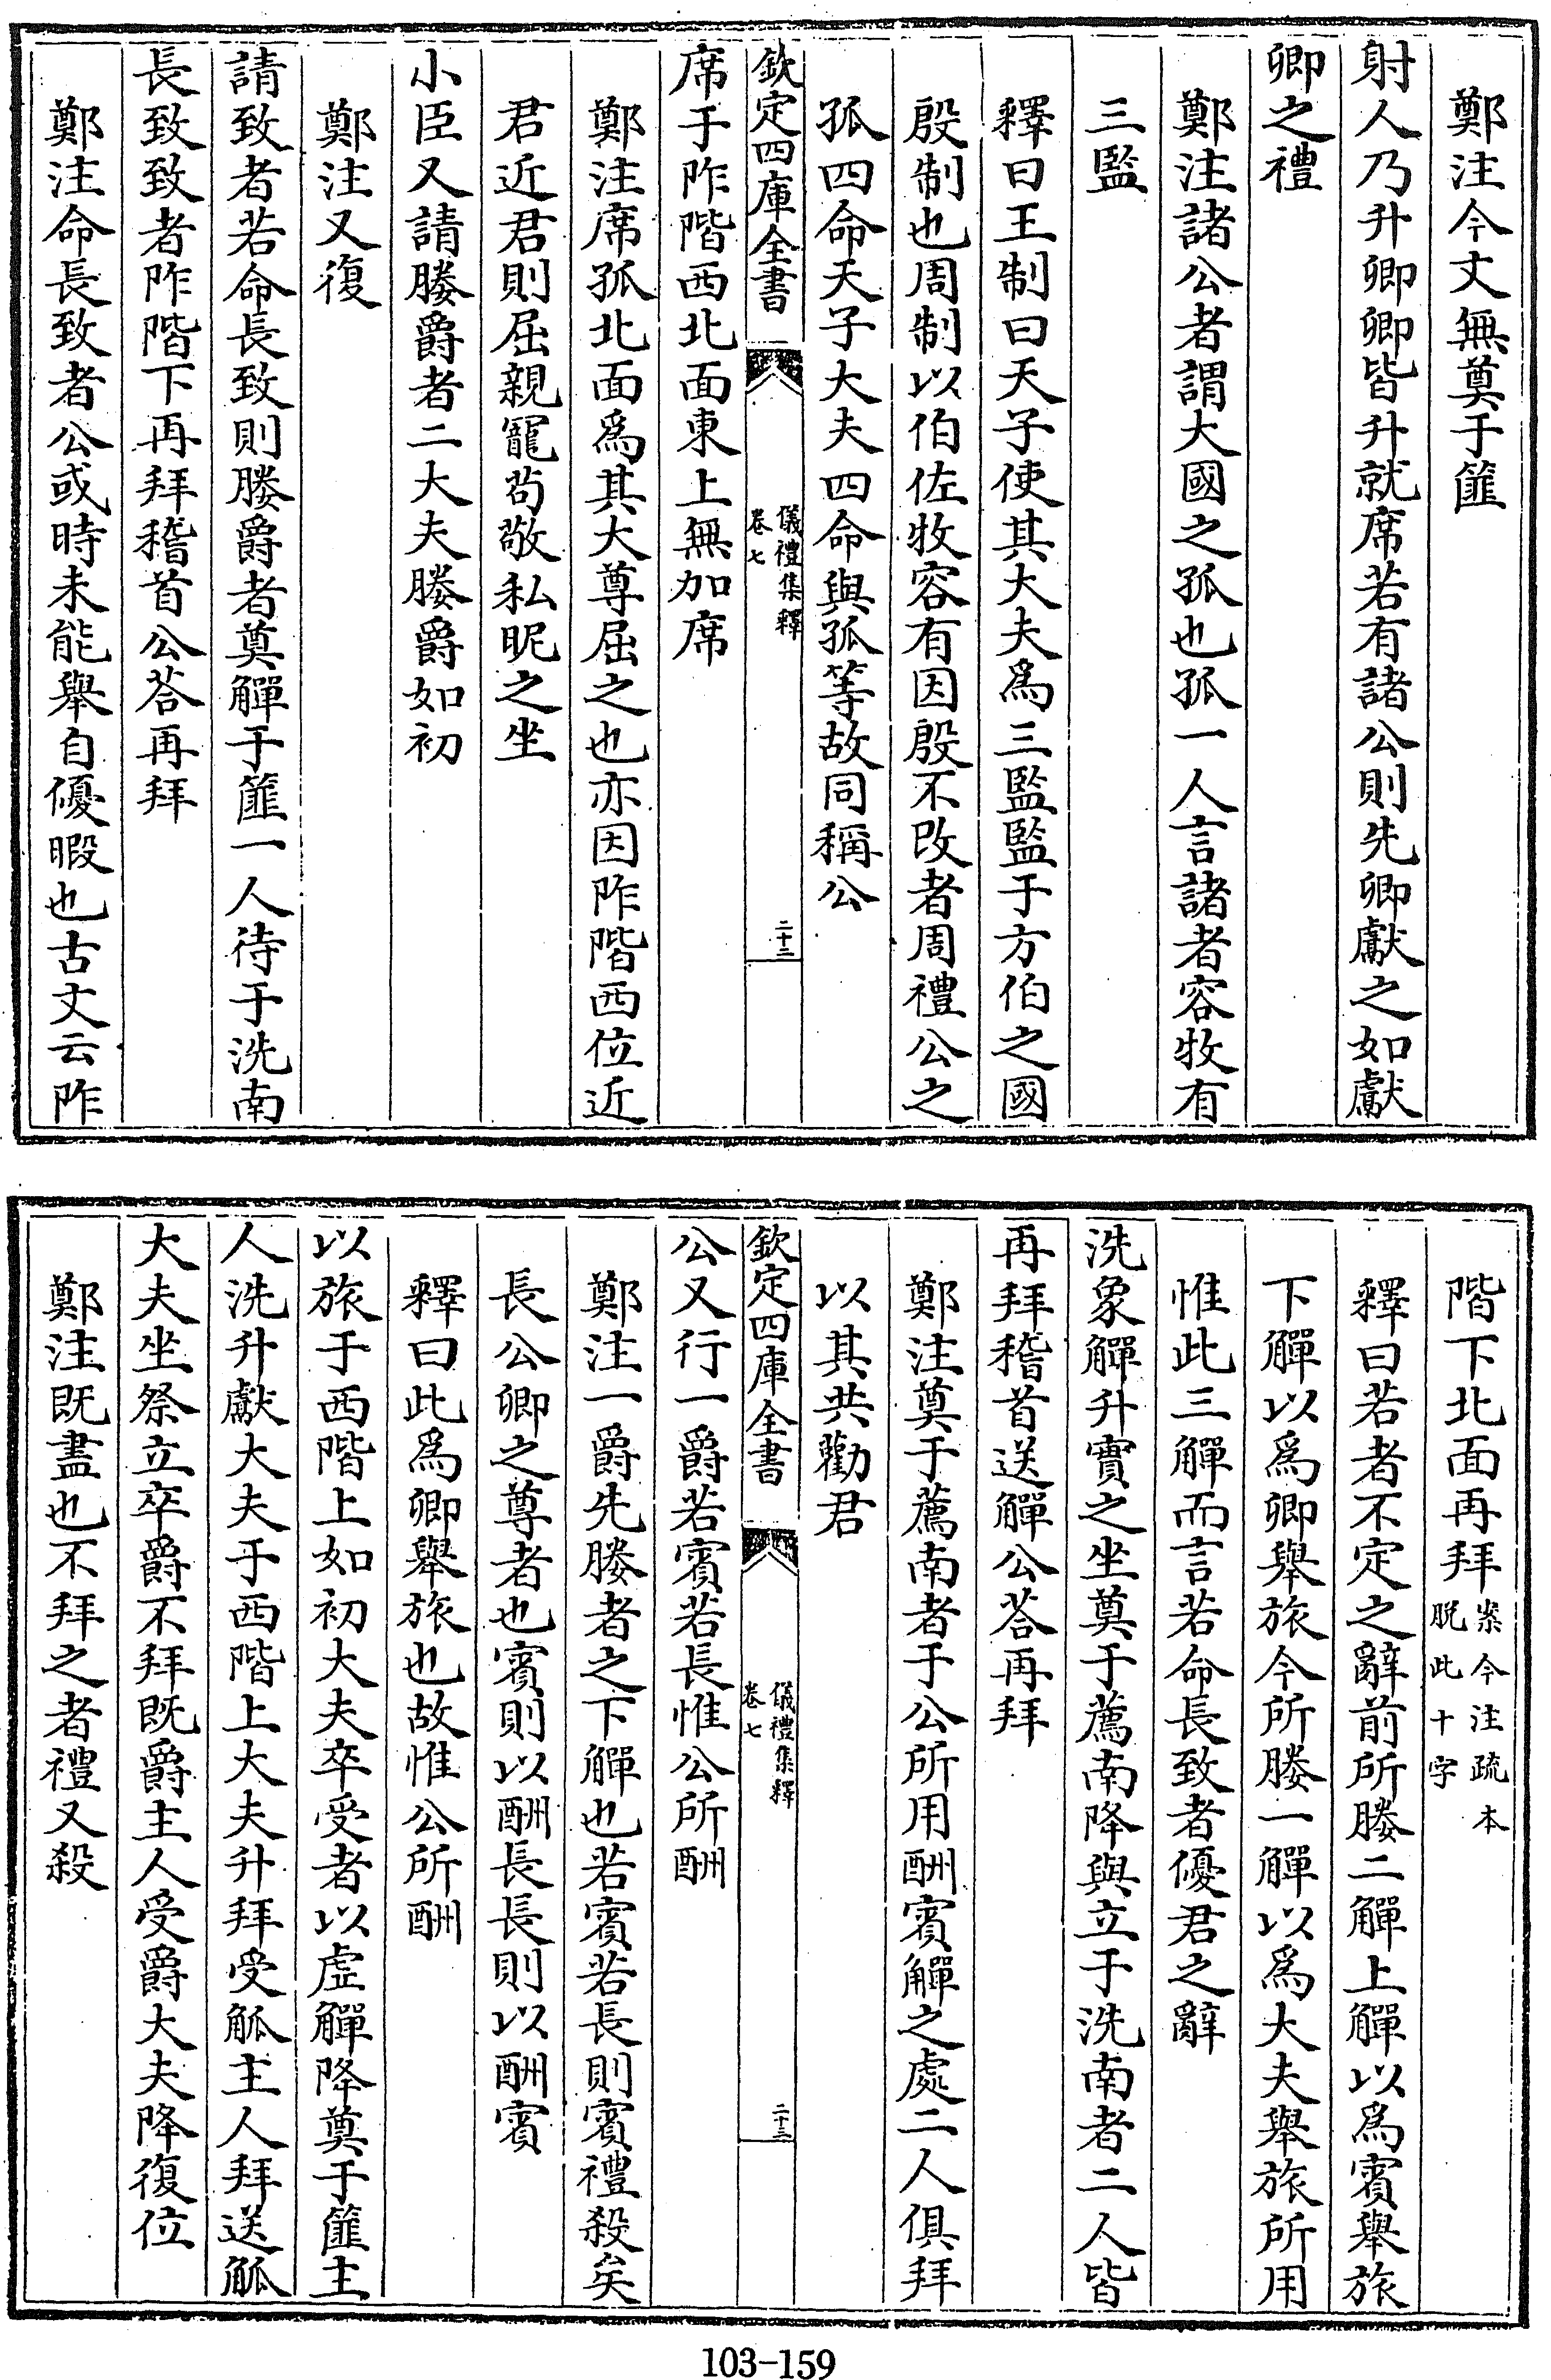 鄭注今文無奠于篚
射人乃升卿卿皆升就席若有諸公則先卿獻之如獻
卿之禮
鄭注諸公者謂大國之孤也孤一人言諸者容牧有
三監
釋曰王制曰天子使其大夫爲三監監于方伯之國
殷制也周制以伯佐牧容有因殷不改者周禮公之
孤四命天子大夫四命與孤等故同稱公
欽定四庫全書
儀禮集釋
卷七
二十二
席于阼階西北面東上無加席
鄭注席孤北面爲其大尊屈之也亦因阼階西位近
君近君則屈親寵苟敬私昵之坐
小臣又請媵爵者二大夫媵爵如初
鄭注又復
請致者若命長致則媵爵者奠觶于篚一人待于洗南
長致致者阼階下再拜稽首公荅再拜
鄭注命長致者公或時未能舉自優暇也古文云阼
階下北面再拜
案今注疏本
脫此十字
釋曰若者不定之辭前所媵二觶上觶以爲賓舉旅
下觶以爲卿舉旅今所媵一觶以爲大夫舉旅所用
惟此三觶而言若命長致者優君之辭
洗象觶升實之坐奠于薦南降與立于洗南者二人皆
再拜稽首送觶公荅再拜
鄭注奠于薦南者于公所用酬賓觶之處二人俱拜
以其共勸君
欽定四庫全書
儀禮集釋
卷七
二十三
公又行一爵若賓若長惟公所酬
鄭注一爵先媵者之下觶也若賓若長則賓禮殺矣
長公卿之尊者也賓則以酬長長則以酬賓
釋曰此爲卿舉旅也故惟公所酬
以旅于西階上如初大夫卒受者以虛觶降奠于篚主
人洗升獻大夫于西階上大夫升拜受觚主人拜送觚
大夫坐祭立卒爵不拜既爵主人受爵大夫降復位
鄭注既盡也不拜之者禮又殺
103-159